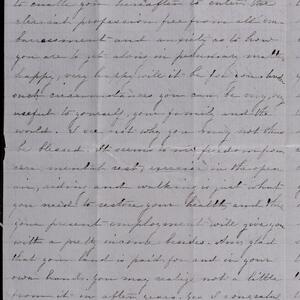 to enable you hereafter to enter the
clerical profession free from all em-
barrassment and anxiety as to how
you are to get along in pecuniary matters
happy, very happy will it be for you
such circumstances you can be
useful to yourself, your family and the
world. I see not why you may not thus
be blessed. It seems to me freedom from
care mental rest, exercise in the open
air, riding and walking is just what
you need to restore your health, and the
give present employment will give you
with a pretty income besides. Am glad
that your land is paid for and in your
own hands. You may realize not a little
from it in after years. I